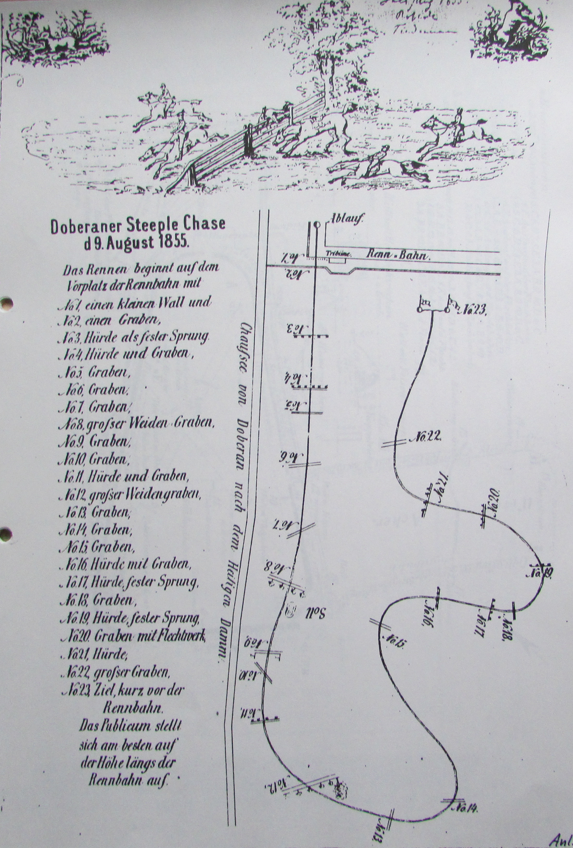 Doberaner Steeple Chase
d 9. August 1855.
Das Rennen beginnt auf dem
Vorplatz der Rennbahn mit
No 1, einen kleinen Wall und
No 2, einen Graben,
No 3, Hürde als fester Sprung
No 4, Hürde und Graben,
No 5, Graben,
No 6, Graben,
No 7, Graben,
No 8, großer Weiden-Graben,
No 9, Graben,
No 10, Graben,
No 11, Hürde und Graben,
No 12, großer Weidengraben,
No 13, Graben,
No 14, Graben,
No 15, Graben,
No 16, Hürde mit Graben,
No 17, Hürde, fester Sprung,
No 18, Graben,
No 19, Hürde, fester Sprung,
No 20, Graben mit Flechtwerk
No 21, Hürde,
No 22, großer Graben,
No 23, Ziel, kurz vor der
Rennbahn.
Das Publicum stellt
sich am besten auf
der Höhe längs der
Rennbahn auf.
Chaussee von Doberan nach dem Heiligen Damm.
Ablauf.
Tribüne.
Renn-Bahn.
No 1.
No 2.
No 3
No 4
No 5
No 6
No 7.
No 8
Soll
No 9.
No 10
No 11.
No 12.
No 13.
No 14.
No 15
No 16.
No 17.
No 18.
No 19.
No 20.
No 21.
No 22.
No 23.
Anl.